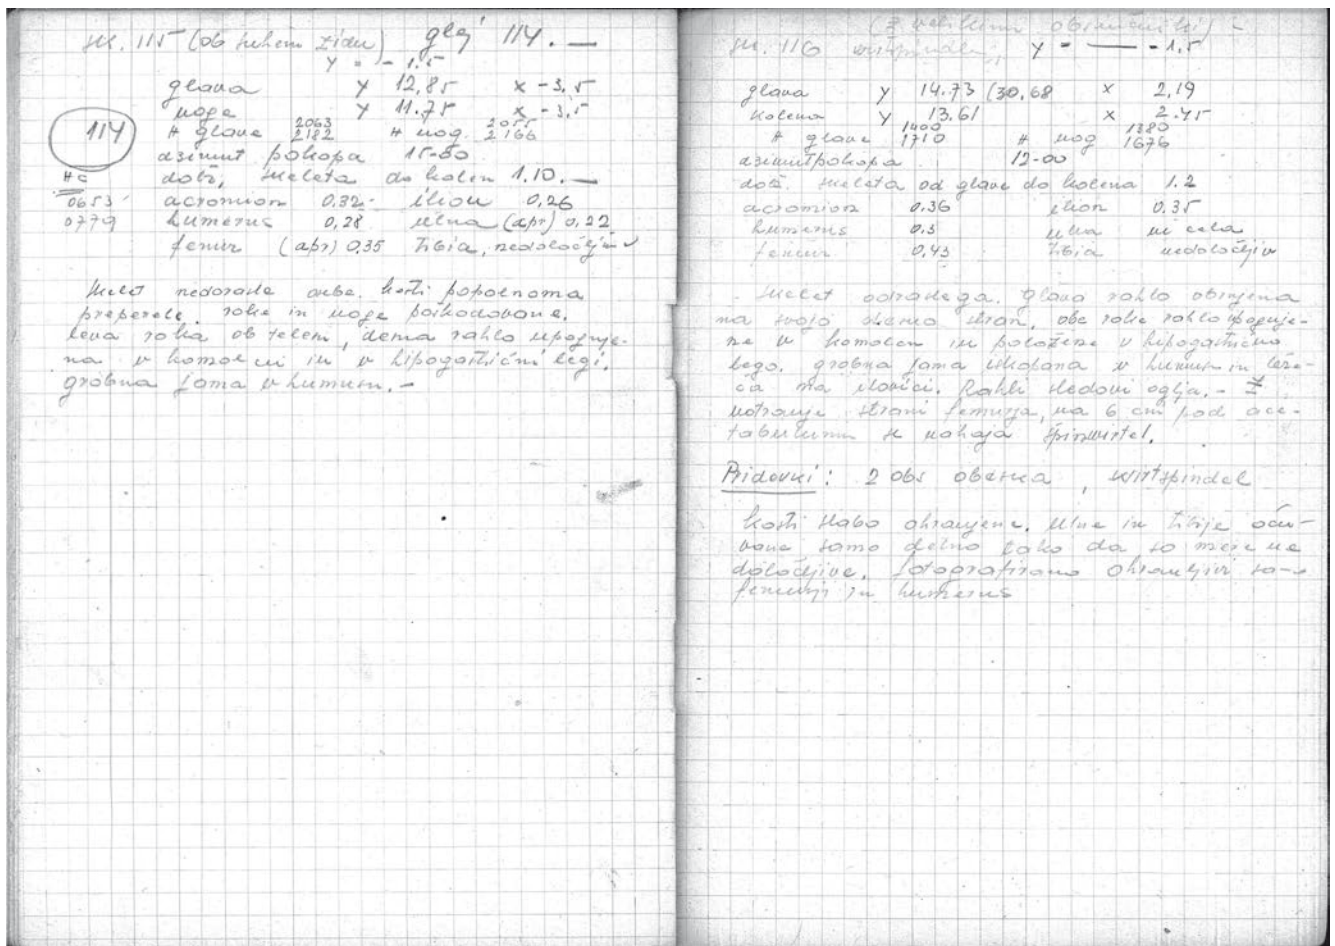 sk. 115 (ob suhem zidu) glej 114. —
y = - 1.5
glava y 12,85 x - 3,5
noge y 11.75 x - 3,5
114
2063 2055
# glave 2182 # nog. 2166
azimut pokopa 15-00
dolž, skeleta do kolen 1.10. —
#c
0653 acromion 0,32 ilion 0,26
0779 humerus 0,28 ulna (apr) 0,22
femur (apr) 0,35 tibia, nedoločljiv
skelet nedorasle osebe. kosti popolnoma
preperele. roke in noge poškodovane.
leva roka ob telesu, desna rahlo upognje-
na v komolcu in v hipogastični legi.
grobna jama v humusu. -
(z velikimi obsenčniki) -
sk. 116 y = — - 1.5
glava y 14.73 (30,68 x 2,19
kolena y 13.61 x 2.45
1400 1380
# glave 1710 # nog 1676
azimut pokopa 12-00
dolž. skeleta od glave do kolena 1.2
acromion 0.36 ilion 0.35
humerus 0.3 ulna ni cela
femur 0,43 tibia nedoločljiv
skelet odraslega. glava rahlo obrnjena
na svojo desno stran, obe roke rahlo upognje-
ne v komolcu in položene v hipogastično
lego. grobna jama izkopana v humusu in leže-
ča na ilovici. Rahli sledovi oglja. - Z
notranje strani femurja, na 6 cm pod ace-
tabulumu se nahaja špinwirtel.
Pridevki: 2 obs obeska, wirtspindel
kosti slabo ohranjene. ulne in tibije oču-
vane samo delno tako da so mere ne
določljive. fotografirano ohranljivi so
femurji in humerus